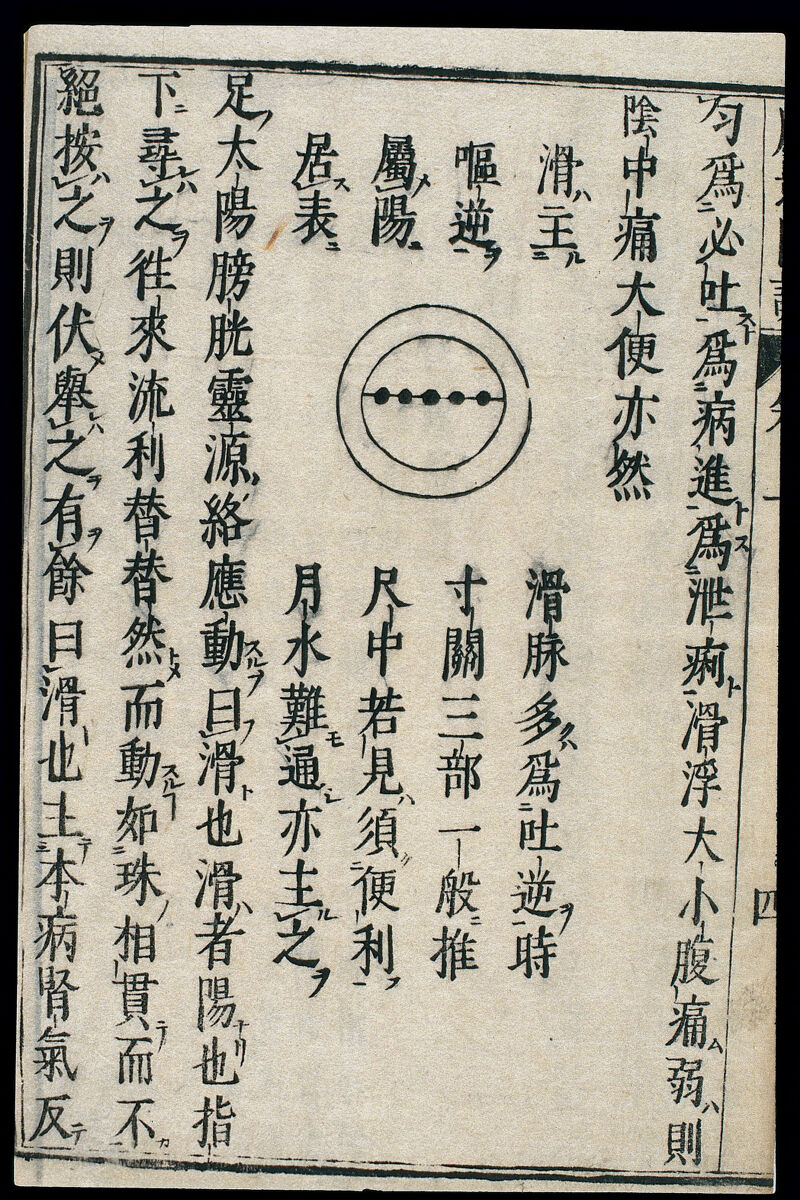 匀爲必吐爲病進爲泄痢滑浮大小腹痛弱則
陰中痛大便亦然
滑主
嘔逆
屬陽
居表
滑脉多爲吐逆時
寸關三部一般推
尺中若見須便利
月水難通亦主之
足太陽膀胱靈源絡應動曰滑也滑者陽也指
下尋之徃來流利替替然而動如珠相貫而不
絕按之則伏舉之有餘曰滑也主本病腎氣反